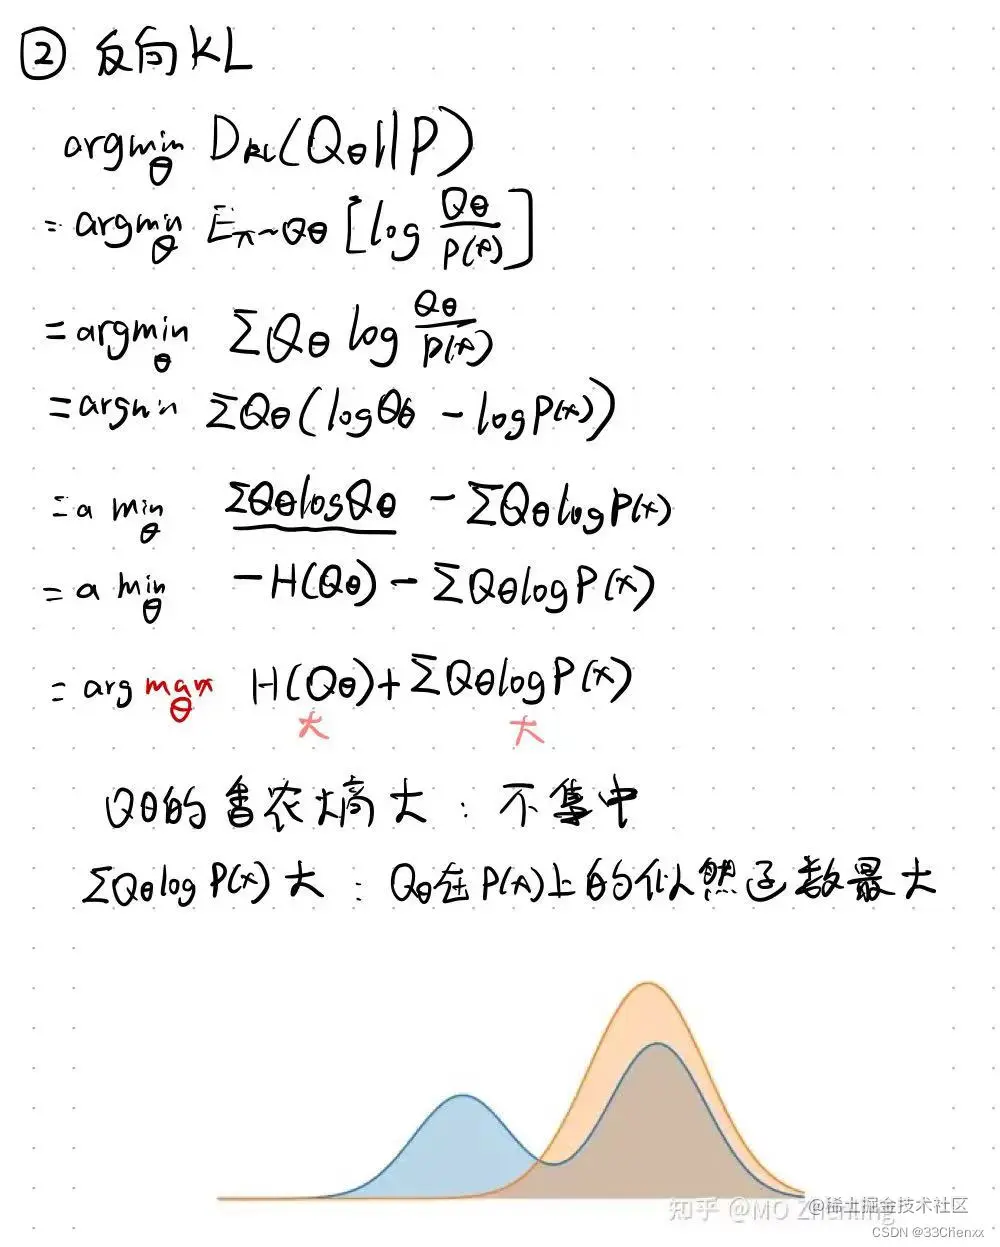 ② 反向KL
argmin θ D_KL(Qθ||P)
= argmin θ E_x~Qθ [log Qθ/P(x)]
= argmin θ ΣQθ log Qθ/P(x)
= argmin ΣQθ(logQθ - logP(x))
= a min θ ΣQθlogQθ - ΣQθlogP(x)
= a min θ -H(Qθ) - ΣQθlogP(x)
= arg max θ H(Qθ)+ΣQθlogP(x)
大 大
Qθ的香农熵大：不集中
ΣQθlogP(x)大：Qθ在P(x)上的似然函数最大
知乎 @MO Zhenting
@稀土掘金技术社区
CSDN @33Chenxx